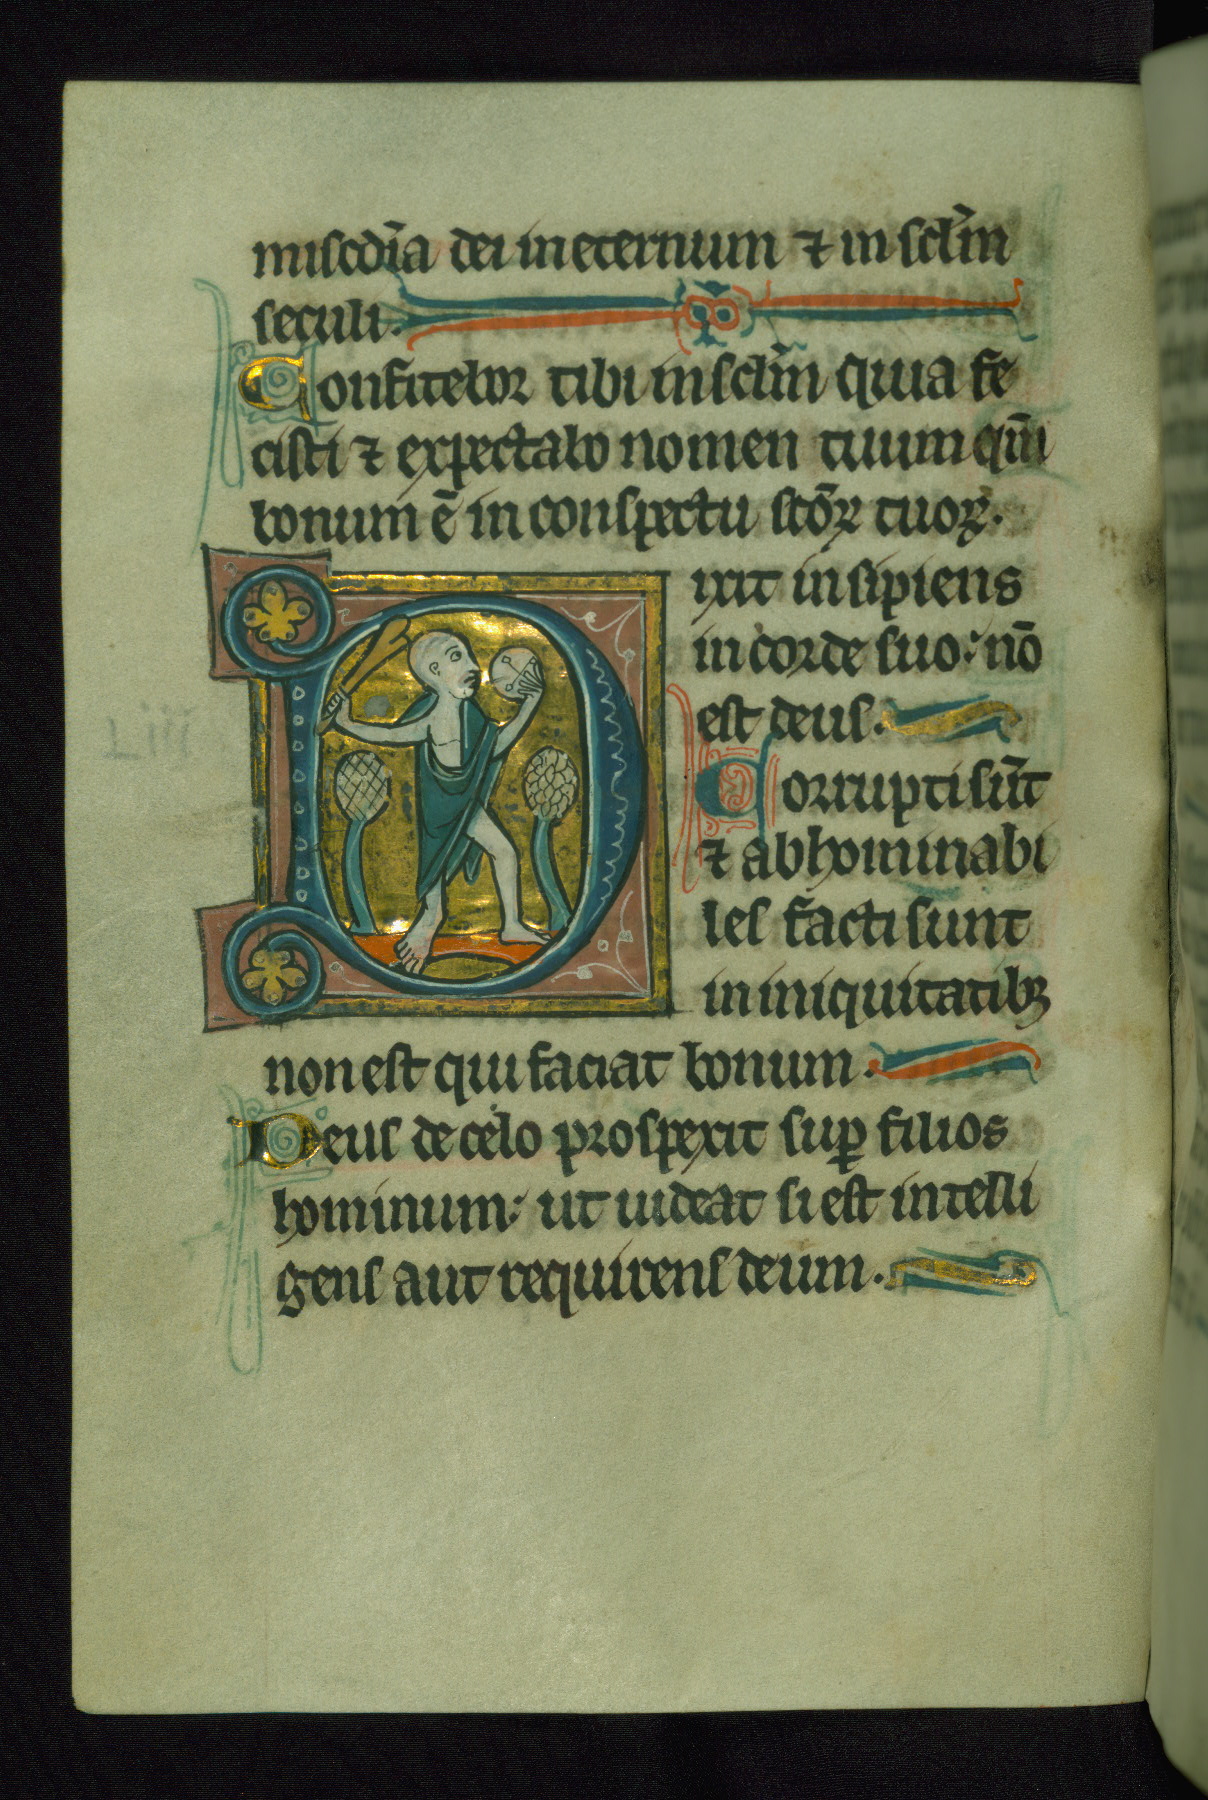 miscdīa dei in eternum ⁊ in sclm̄
seculi.
Confitebor tibi in sclm̄ quia fe
cisti ⁊ expectabo nomen tuum qm̄
bonum ē in conspectu scōꝝ tuoꝝ.
Dixit insipiens
in corde suo: nō
est deus.
Corrupti sūt
⁊ abhominabi
les facti sunt
in iniquitatibꝫ
non est qui faciat bonum.
Deus de celo prospexit suꝑ filios
hominum: ut uideat si est intelli
gens aut requirens deum.
Liii